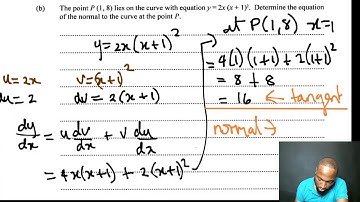 (b) The point P (1, 8) lies on the curve with equation y = 2x (x + 1)². Determine the equation
of the normal to the curve at the point P.
y = 2x(x+1)²
u = 2x v = (x+1)²
du = 2 dv = 2(x+1)
dy/dx = u dv/dx + v du/dx
= 4x(x+1) + 2(x+1)²
at P(1,8) x=1
= 4(1)(1+1) + 2(1+1)²
= 8 + 8
= 16 ← tangent
normal →